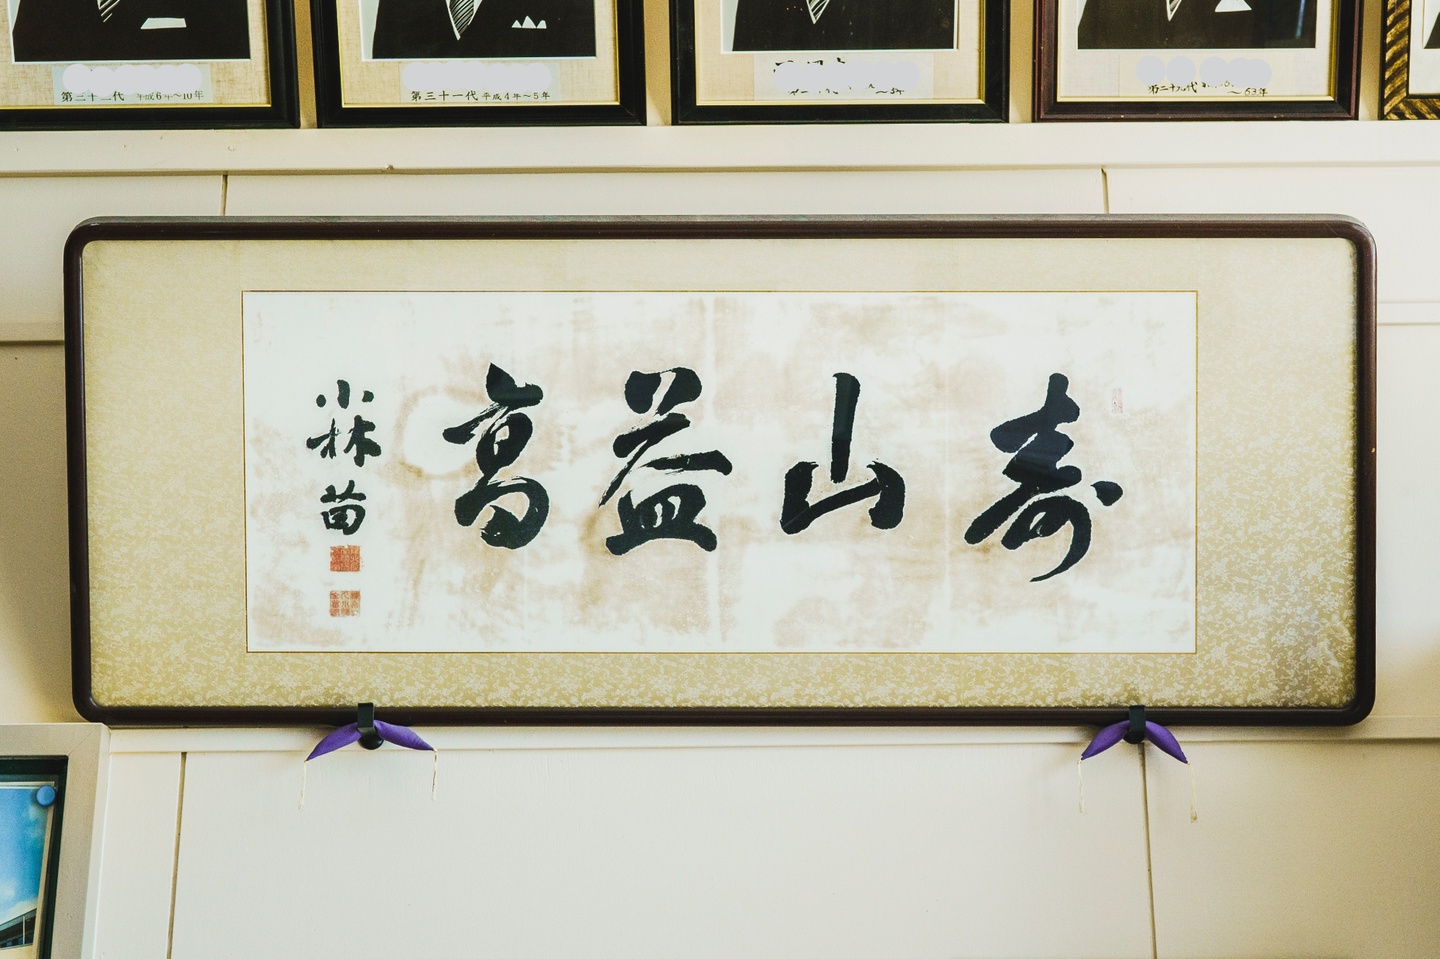 第三十二代 平成6年～10年
第三十一代 平成4年～5年
第二十九代 ～63年
寿山益高
小林苗